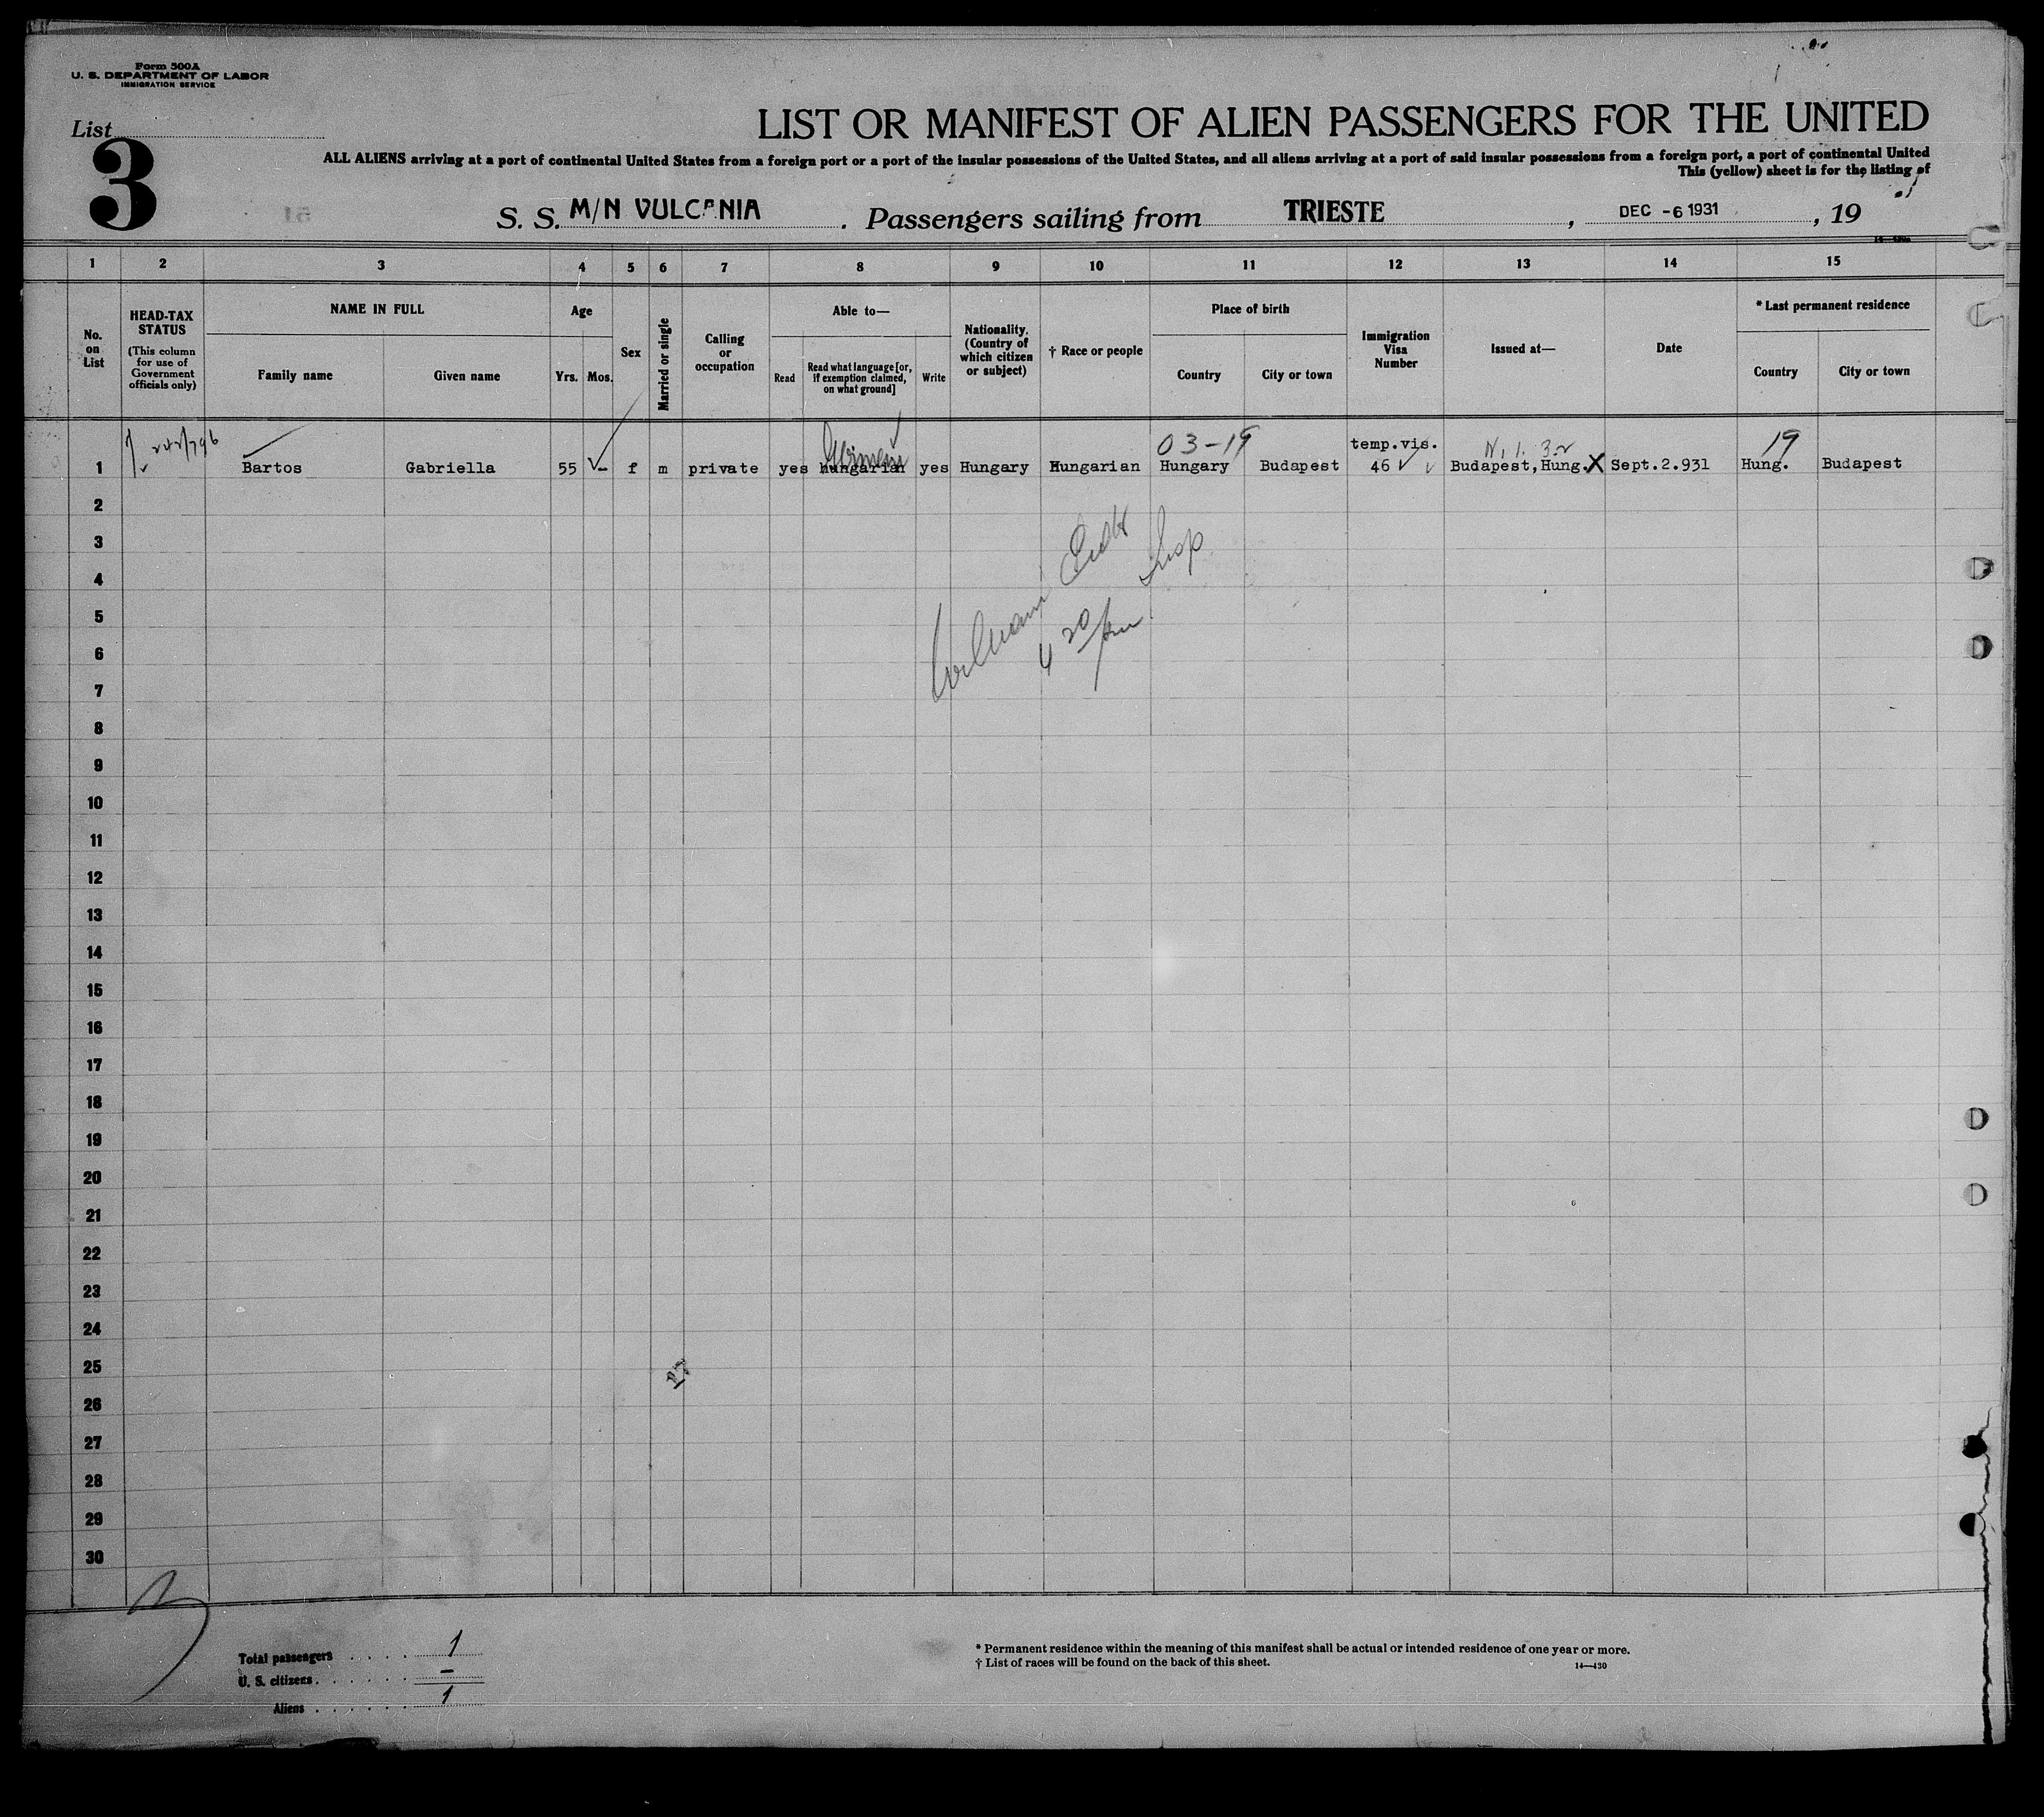 Form 500A
U. S. DEPARTMENT OF LABOR
IMMIGRATION SERVICE
List
3
LIST OR MANIFEST OF ALIEN PASSENGERS FOR THE UNITED
ALL ALIENS arriving at a port of continental United States from a foreign port or a port of the insular possessions of the United States, and all aliens arriving at a port of said insular possessions from a foreign port, a port of continental United
This (yellow) sheet is for the listing of
S. S. M/N VULCANIA. Passengers sailing from TRIESTE, DEC -6 1931, 19
1 2 3 4 5 6 7 8 9 10 11 12 13 14 15
No. on List
HEAD-TAX STATUS
(This column for use of Government officials only)
NAME IN FULL
Family name
Given name
Age
Yrs. Mos.
Sex
Married or single
Calling or occupation
Able to—
Read
Read what language [or, if exemption claimed, on what ground]
Write
Nationality. (Country of which citizen or subject)
† Race or people
Place of birth
Country
City or town
Immigration Visa Number
Issued at—
Date
* Last permanent residence
Country
City or town
German
03-19
temp.vis.
19
1 Bartos Gabriella 55 - f m private yes hungarian yes Hungary Hungarian Hungary Budapest 46 Budapest, Hung. X Sept.2.931 Hung. Budapest
2
3
4
5
6
7
8
9
10
11
12
13
14
15
16
17
18
19
20
21
22
23
24
25
26
27
28
29
30
4 20 pm
Total passengers . . . . . 1
U. S. citizens . . . . . . . –
Aliens . . . . . . . 1
* Permanent residence within the meaning of this manifest shall be actual or intended residence of one year or more.
† List of races will be found on the back of this sheet.
14—430